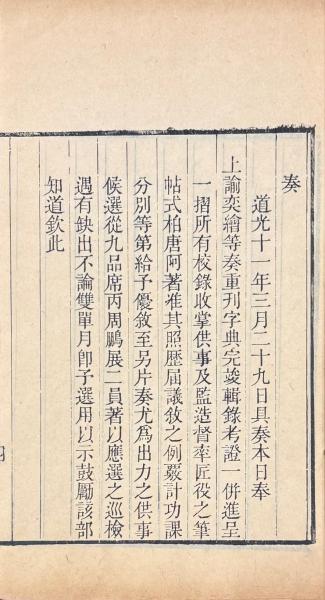 奏
道光十一年三月二十九日具奏本日奉
上諭奕繪等奏重刊字典完竣輯錄考證一併進呈
一摺所有校錄收掌供事及監造督率匠役之筆
帖式柏唐阿著准其照歷屆議敘之例覈計功課
分別等第給予優敘至另片奏尤為出力之供事
候選從九品席丙周鵬展二員著以應選之巡檢
遇有缺出不論雙單月卽予選用以示鼓勵該部
知道欽此